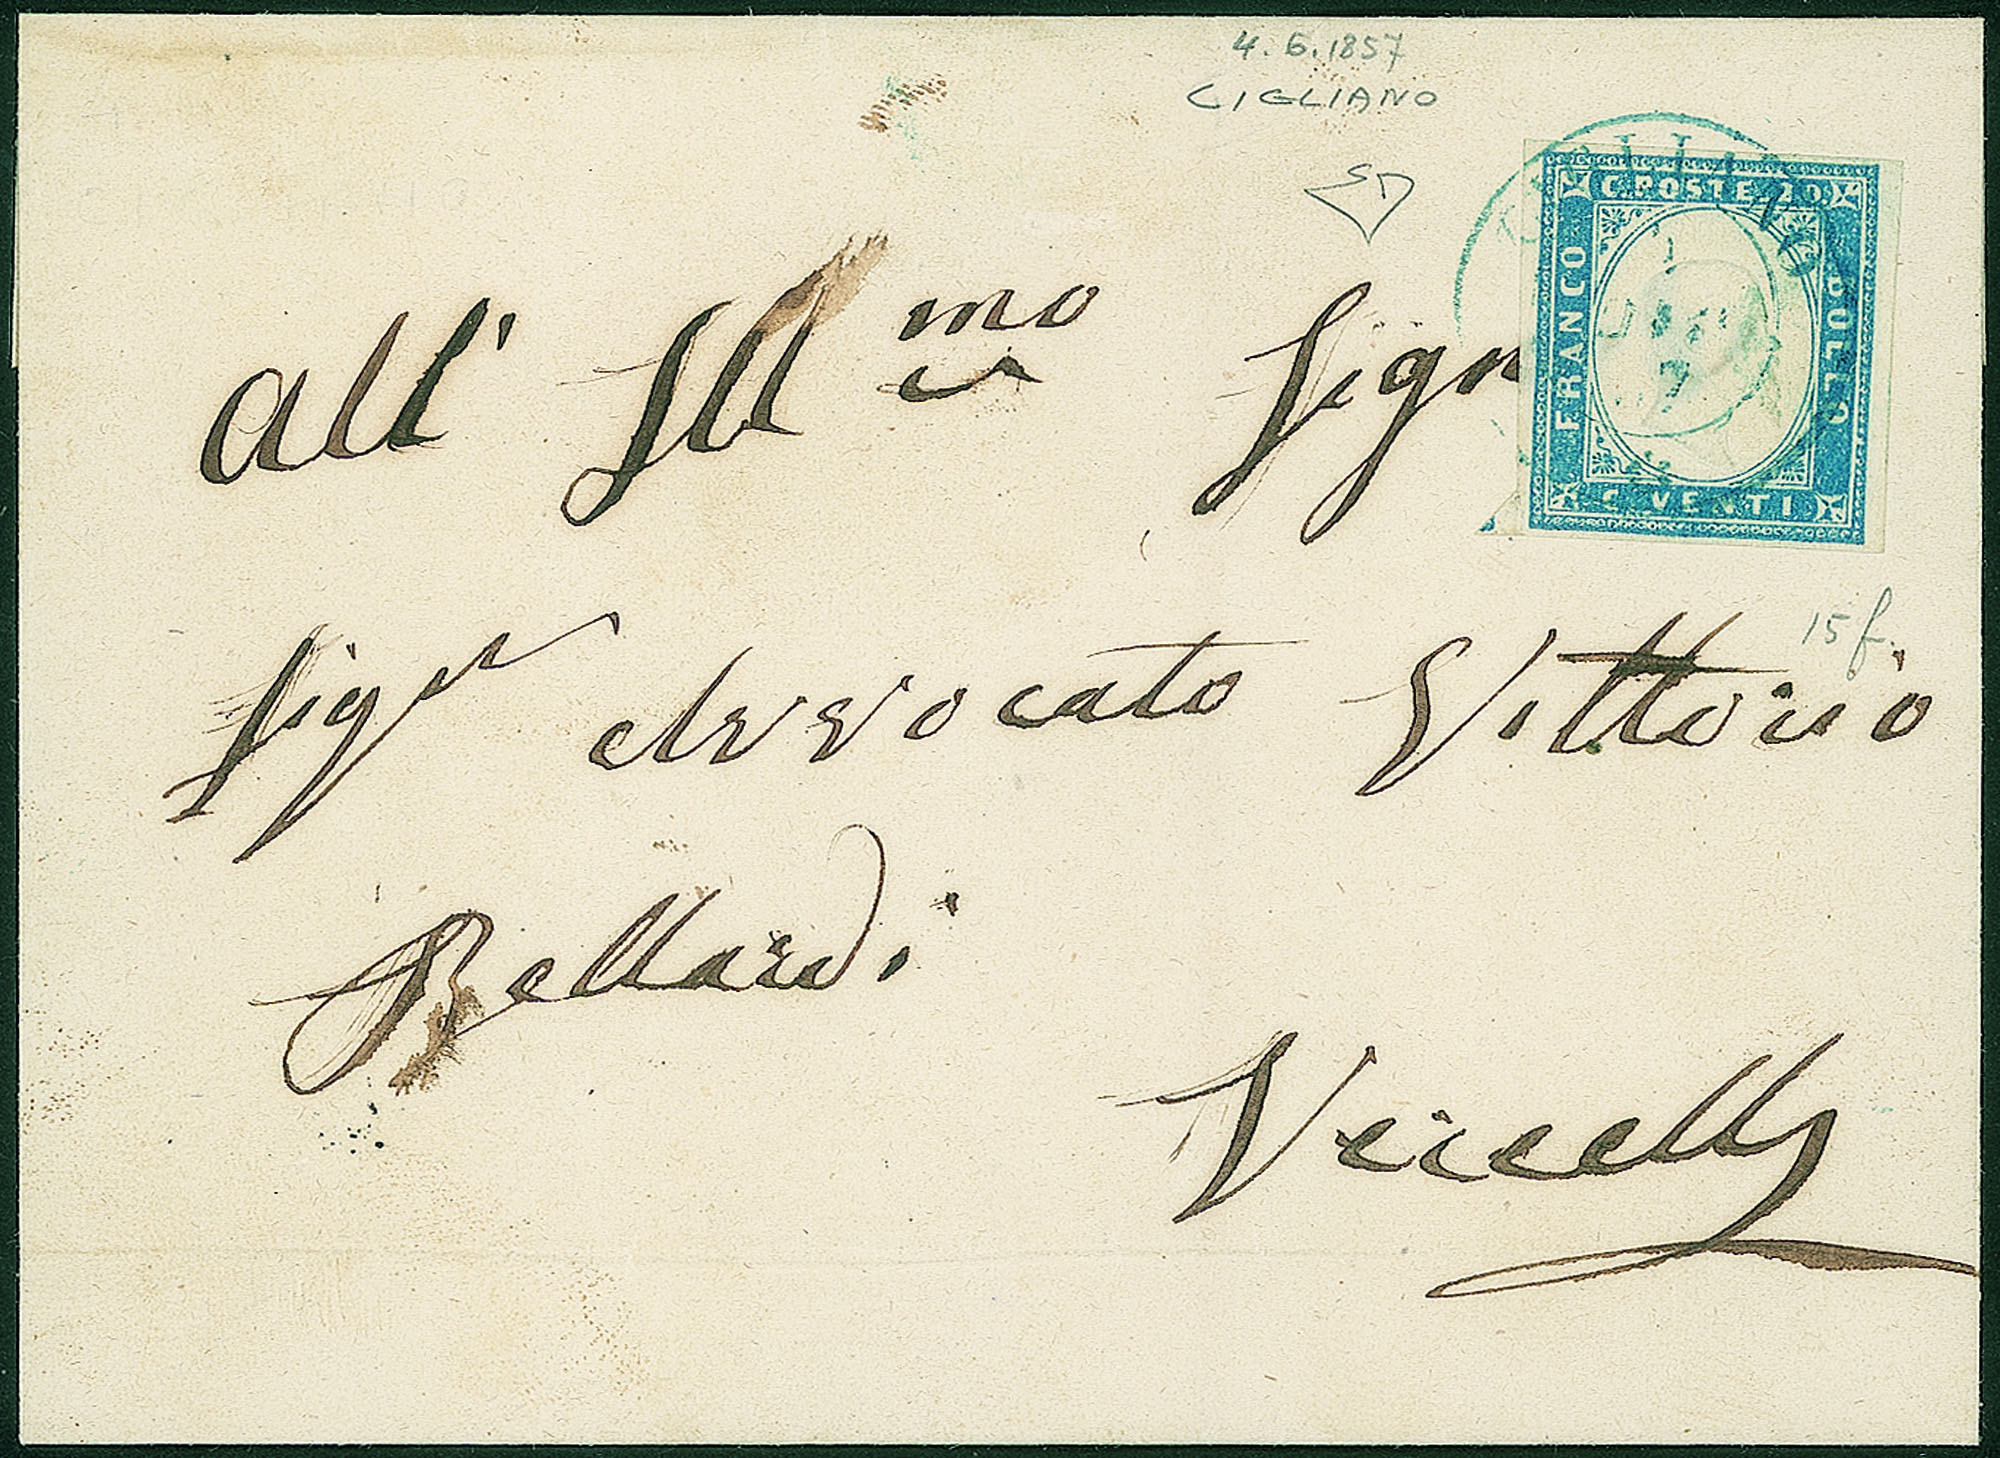 4. 6. 1857
CIGLIANO
CIGLIANO
C. POSTE 20
FRANCO
BOLLO
C. VENTI
all' Ill.mo Sign
15 f.
Sigr Avvocato Vittorio
Bellardi
Vercelli